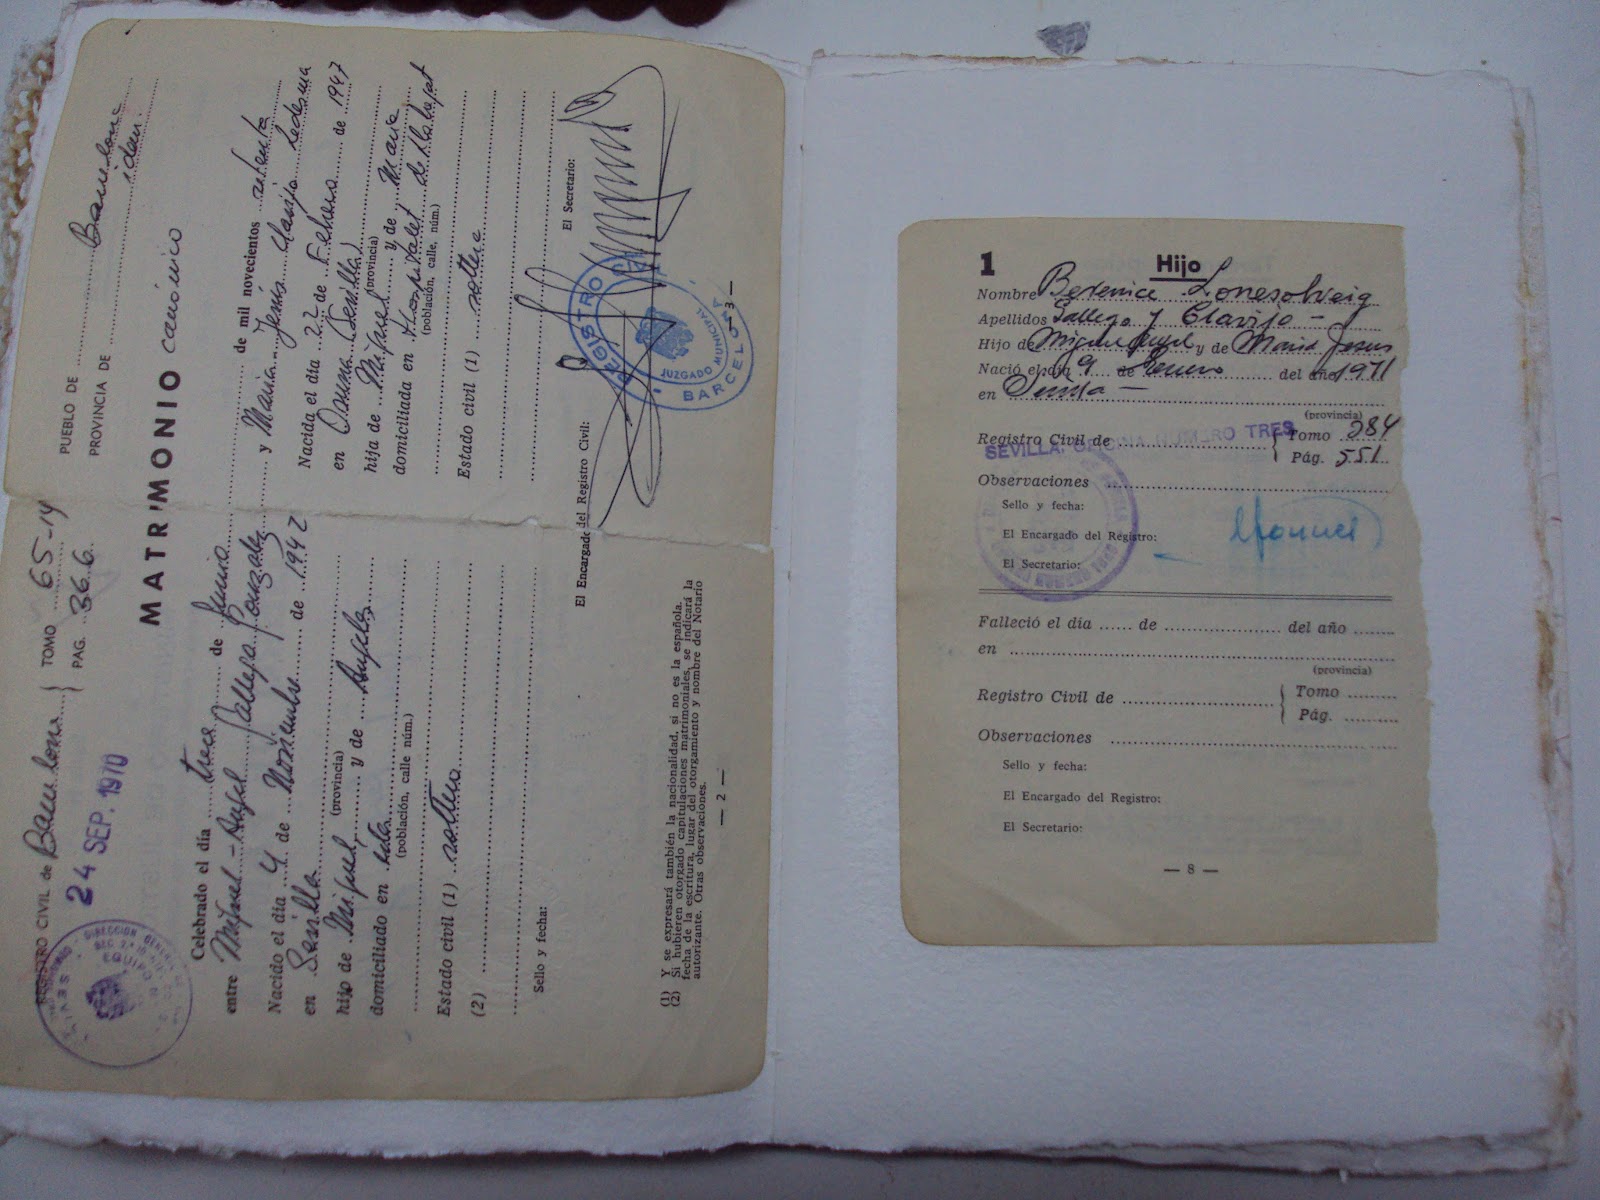 REGISTRO CIVIL de Barcelona TOMO 65-14
PAG. 366
PUEBLO DE Barcelona
PROVINCIA DE idem
24 SEP. 1970
MATRIMONIO canónico
Celebrado el día trece de Junio de mil novecientos setenta
entre Miguel-Angel Gallego Gonzalez
Nacido el día 4 de Noviembre de 1942
en Sevilla
(provincia)
hijo de Miguel y de Angeles
domiciliado en
(población, calle núm.)
Estado civil (1) soltero
(2)
Sello y fecha:
y Maria Jesús Clavijo Ledesma
Nacida el día 22 de Febrero de 1947
en Osuna (Sevilla)
(provincia)
hija de Miguel y de Maria
domiciliada en Hospitalet de Llobregat
(población, calle, núm.)
Estado civil (1) soltera
El Encargado del Registro Civil:
El Secretario:
REGISTRO
JUZGADO MUNICIPAL
BARCELONA
(1) Y se expresará también la nacionalidad, si no es la española.
(2) Si hubieren otorgado capitulaciones matrimoniales, se indicará la
fecha de la escritura, lugar del otorgamiento y nombre del Notario
autorizante. Otras observaciones.
— 2 —
— 3 —
1
Hijo
Nombre Berenice Lonesolveig
Apellidos Gallego y Clavijo
Hijo de Miguel Angel y de Maria Jesus
Nació el día 9 de Enero del año 1971
en Sevilla
(provincia)
Registro Civil de Tomo 284
SEVILLA, OFICINA NUMERO TRES
Pág. 551
Observaciones
Sello y fecha:
El Encargado del Registro:
El Secretario:
Falleció el día de del año
en
(provincia)
Registro Civil de Tomo
Pág.
Observaciones
Sello y fecha:
El Encargado del Registro:
El Secretario:
— 8 —